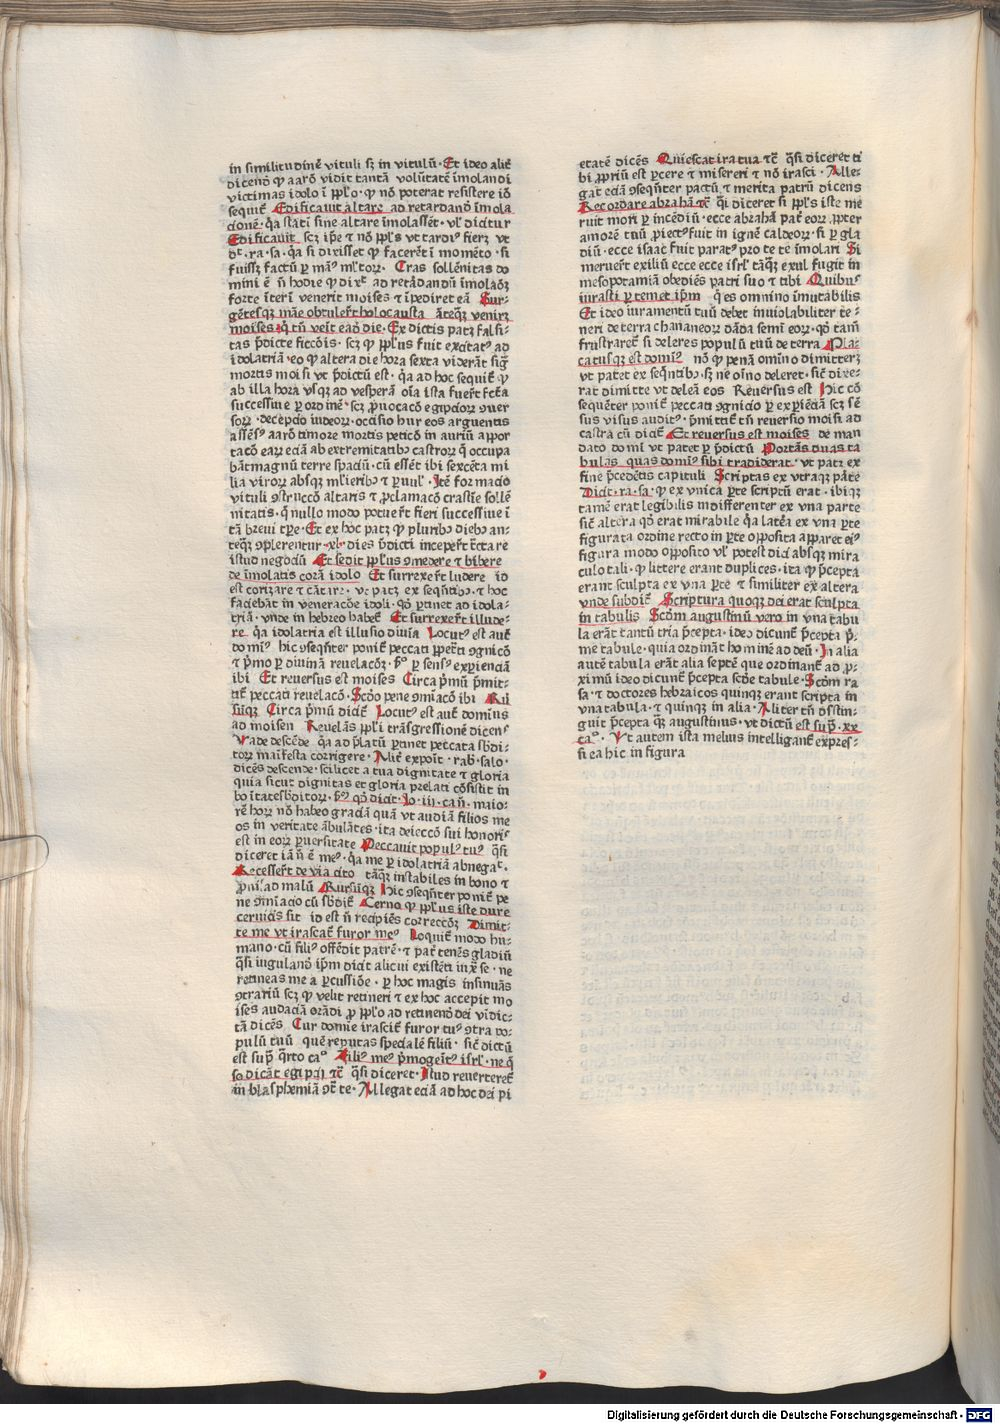 in similitudinē vituli sꝫ in vitulū · Et ideo aliē
dicenō ꝙ aarō vidit tantā volūtatē īmolandi
victimas idolo ī ppl̄o · ꝙ nō poterat resistere iō
sequiť Edificauit altare ad retardanō īmola
cionē · q̄a stati sine altare īmolasset · vl̓ dicitur
Edificauit scꝫ ip̄e ⁊ nō ppl̄s vt tardiꝰ fierꝫ vt
dt̄ · ra · sa · q̄a si dixisset ꝙ facerēt ī momēto · si
fuissꝫ factū ꝑ manꝰ ml̓torꝝ · Cras sollēnitas do
mini ē n̄ hodie ꝙ dixͭ ad retādandū īmolaōꝫ
forte īterī venerit moises ⁊ īpediret eā Sur⸗
gētesqꝫ māe obtulerūt holocausta āteqͣꝫ venirꝫ
moises q̄ tn̄ veīt eaō die · Ex dictis patꝫ falsi⸗
tas p̄dicte ficcōis · scꝫ ꝙ ppl̄us fuit excitatꝰ ad
idolatriā · eo ꝙ altera die hora sexta viderāt sigᷓ
mortis moisi vt p̄dictū est · q̄a ad hoc sequiť ꝙ
ab illa hora vsqꝫ ad vesperā oīa ista fuerūt fcā
successiue ꝑ ordinē · scꝫ ꝓuocacō egipciorꝝ ꝯuer
sorꝝ · decepcio iudeorꝝ · occisio hur eos arguentis
assēsꝰ aarō timore mortis peticō in auriū appor
tacō earꝝ eciā ab extremitatibꝰ castrorꝝ q̄ occupa
bāt magnū terre spaciū · cū essēt ibi sexcēta mi
lia virorꝝ absqꝫ ml̓ieribꝰ ⁊ ꝑuul̓ · Itē formacio
vituli ꝯstruccō altaris ⁊ ꝓclamacō crastīe sollē
nitatis · q̄ nullo modo potuerūt fieri successiue ī
tā breui tꝑe · Et ex hoc patꝫ ꝙ pluribꝰ diebꝰ an⸗
teqͣꝫ ꝯplerentur · xl · dies p̄dicti inceperūt tractare
istud negociū Et sedit ppl̄us ꝯmedere ⁊ bibere
de īmolatis corā idolo Et surrexerūt ludere id
est corizare ⁊ cātare · vt patꝫ ex seqn̄tibꝰ · ⁊ hoc
faciebāt in veneracōe idoli · qd̄ ꝑtinet ad idola⸗
triā · vnde in hebreo habeť Et surrexerūt illude⸗
re q̄a idolatria est illusio diuīa Locutꝰ est aut̄
domīꝰ hic ꝯseqn̄ter poniť peccati ppetrati ꝯgnicō
⁊ p̄mo ꝑ diuinā reuelacōꝫ · scd̄o ꝑ sensꝰ exꝑienciā
ibi Et reuersus est moises Circa p̄mū p̄mit⸗
tiť peccati reuelacō · Scd̄o pene ꝯminacō ibi Rur
suqꝫ Circa p̄mū diciť Locutꝰ est aut̄ dominus
ad moisen Reuelās ppl̄i trāsgressionē dicensꝰ
Vade descēde q̄a ad p̄latū ꝑtinet peccata sb̄di⸗
torꝝ manifesta corrigere · Aliť expoīt · rab · salo ·
dicēs descende · scilicet a tua dignitate ⁊ gloria
quia sicut dignitas et gloria prelati cōsistit in
boītate sb̄ditorꝝ · scd̄m qd̄ dicit · Io · iii · can̄ · maio⸗
rē horꝝ nō habeo graciā quā vt audiā filios me
os in veritate ābulātes · ita deieccō sui honoris
est in eorꝝ ꝑuersitate Peccauit populꝰ tuꝰ q̄si
diceret iā n̄ ē meꝰ · q̄a me ꝑ idolatriā abnegat ·
Recesserūt de via cito tāqͣꝫ instabiles in bono ⁊
ꝓni ad malū Rursūqꝫ Hic ꝯseqn̄ter poniť pe
ne ꝯminacio cū sb̄diť Cerno ꝙ ppl̄us iste dure
ceruicis sit id est n̄ recipiēs correccōꝫ Dimit⸗
te me vt irascať furor meꝰ Loquiť modo hu⸗
mano · cū filiꝰ offēdit patrē · ⁊ pat̄ tenēs gladiū
q̄si iugulanō ip̄m dicit alicui existēti iuxͣ se · ne
retineas me a ꝑcussiōe · ꝑ hoc magis insinuās
ꝯtrariū scꝫ ꝙ velit retineri ⁊ ex hoc accepit mo
ises audaciā orādi ꝓ ppl̄o ad retinenō dei vidic⸗
tā dicēs Cur domīe irasciť furor tuꝰ ꝯtra po⸗
pulū tuū quē reputas specialē filiū · sic̄ dictū
est supͣ q̄rto caͦ Filiꝰ meꝰ p̄mogeītꝰ isrl̄ · ne q̄
so dicāt egipcij ⁊c̄ q̄si diceret · Istud reuertereť
in blasphemiā ꝯͭ te · Allegat eciā ad hoc dei pi
etatē dicēs Quiescat ira tua ⁊c̄ q̄si diceret ti
bi ꝓpriū est ꝑcere ⁊ misereri ⁊ nō irasci · Alle⸗
gat eciā ꝯseqn̄ter pactū ⁊ merita patrū dicens
Recordare abrahā ⁊c̄ q̄i diceret si ppl̄s iste me
ruit mori ꝑ incēdiū · ecce abrahā pat̄ eorꝝ ꝓpter
amorē tuū ꝓiectꝰ fuit in ignē caldeorꝝ · si ꝑ gla
diū · ecce isaac fuit paratꝰ pro te te īmolari Si
meruerūt exiliū ecce ecce isrl̄ tāqͣꝫ exul fugit in
mesopotamiā obediēs patri suo ⁊ tibi Quibus
iurasti ꝑ temet ip̄m q̄ es omnino īmutabilis
Et ideo iuramentū tuū debet īmuiolabiliter te⸗
neri de terra chananeorꝝ dāda semī eorꝝ · qd̄ tam̄
frustrareť si deleres populū tuū de terra Pla⸗
catusqꝫ est domīꝰ nō ꝙ penā omīno dimitterꝫ
vt patet ex seqn̄tibꝰ · sꝫ ne oīno deleret · sic̄ dixe⸗
rat dimitte vt deleā eos Reuersus est Hic cō
sequēter poniť peccati ꝯgnicio ꝑ exꝑiēciā scꝫ sē
sus visus auditꝰ · p̄mittiť tn̄ reuersio moisi ad
castra cū diciť Et reuersus est moises de man
dato domī vt patet ꝑ p̄dictū Portās duas ta
bulas quas domīꝰ sibi tradiderat · vt patꝫ ex
fine p̄cedētis capituli Scriptas ex vtraqꝫ ꝑte
Dicit · ra · sa · ꝙ ex vnica ꝑte scriptū erat · ibiqꝫ
tamē erat legibilis indifferenter ex vna parte
sic̄ altera qd̄ erat mirabile q̄a latēra ex vna ꝑte
figurata ordine recto in ꝑte opposita apparet eiꝰ
figura modo opposito vl̓ potest dici absqꝫ mira
culo tali · ꝙ littere erant duplices · ita ꝙ p̄cepta
erant sculpta ex vna ꝑte ⁊ similiter ex altera
vnde subdiť Scriptura quoqꝫ dei erat sculpta
in tabulis Scd̄m augustinū vero in vna tabu
la erāt tantū tria p̄cepta · ideo dicunť p̄cepta p̄⸗
me tabule · quia ordināt hominē ad deū · In alia
autē tabula erāt alia septē que ordinant ad ꝓ⸗
ximū ideo dicunť p̄cepta scd̄e tabule · Scd̄m ra
sa · ⁊ doctores hebraicos quinqꝫ erant scripta in
vna tabula · ⁊ quinqꝫ in alia · Aliter tn̄ distin⸗
guit p̄cepta qͣꝫ augustinus · vt dictū est supͣ · xx
caͦ · Vt autem ista melius intelliganť expres⸗
si ea hic in figura
Digitalisierung gefördert durch die Deutsche Forschungsgemeinschaft · DFG